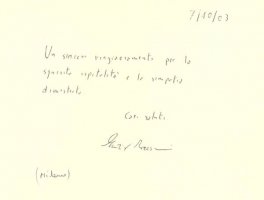 7/10/03
Un sincero ringraziamento per la
squisita ospitalità e la simpatia
dimostrata.
Cari saluti
(Milano)